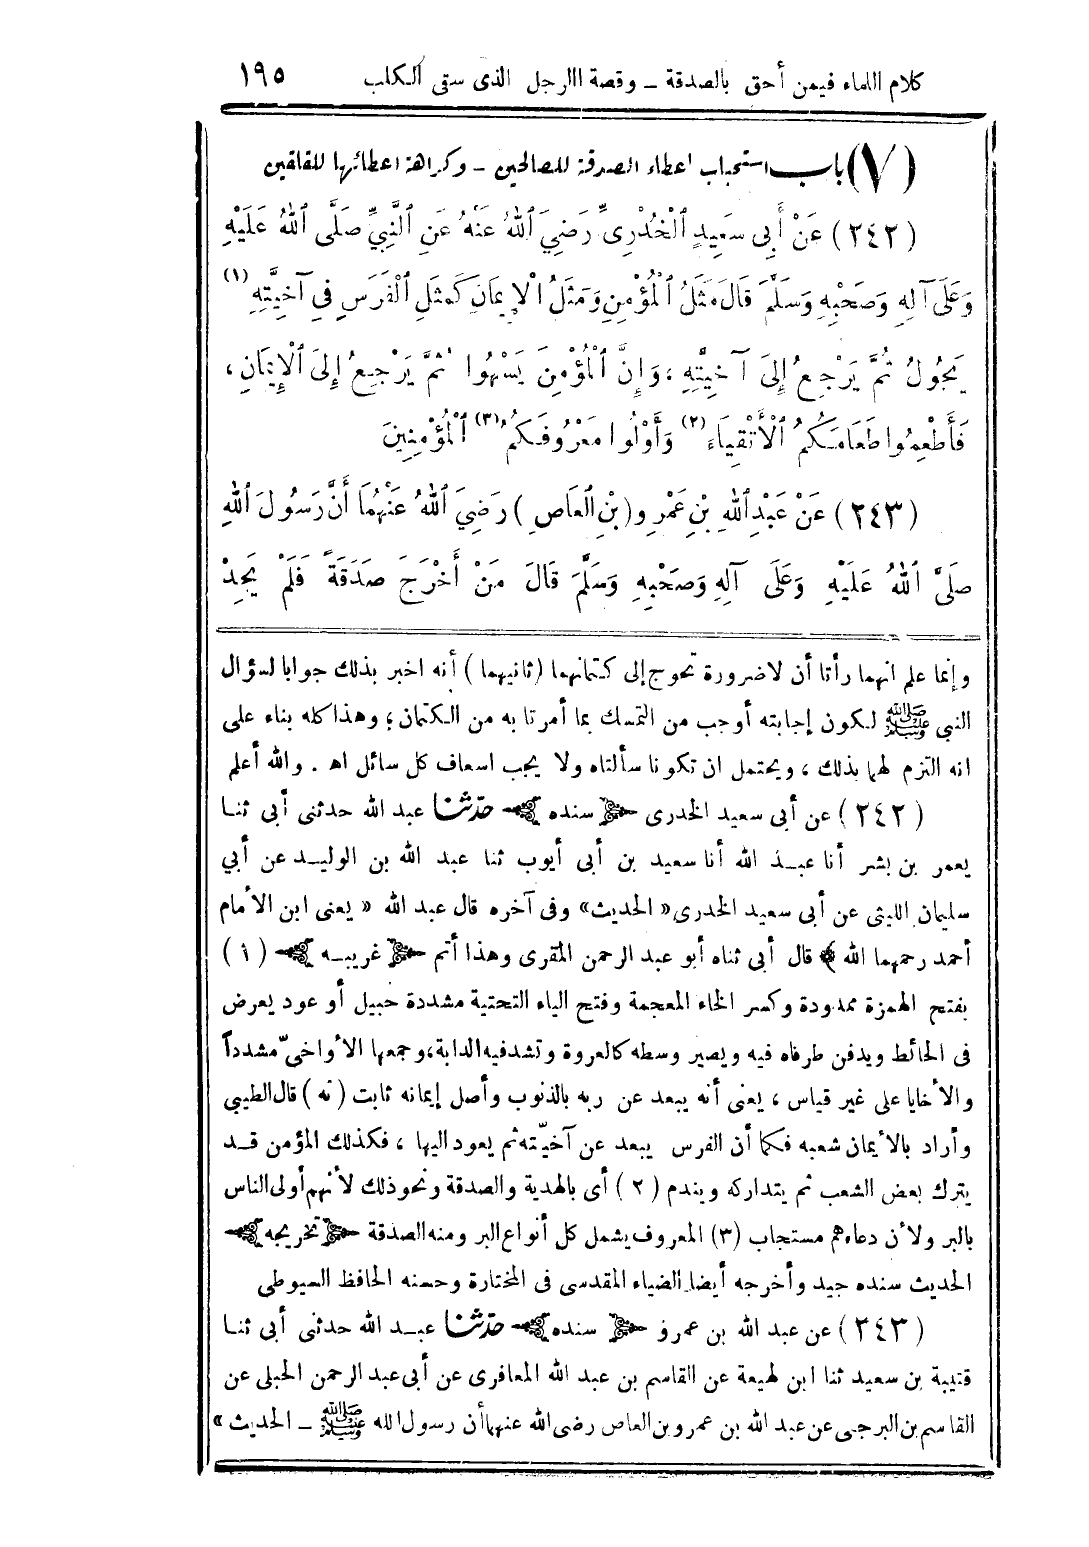 كلام اللماء فيمن أحق بالصدقة ــ وقصة االرجل الذى سقى الكلب ١٩٥
(٧) باب استحباب اعطاء الصدقة للصالحين ــ وكراهة اعطائها للفاقين
(٢٤٢) عَنْ أَبِى سَعِيدٍ الْخُدْرِىِّ رَضِيَ اللهُ عَنْهُ عَنِ النَّبِيِّ صَلَّى اللهُ عَلَيْهِ
وَعَلَى آلِهِ وَصَحْبِهِ وَسَلَّمَ قَالَ مَثَلُ الْمُؤْمِنِ وَمَثَلُ الْإِيمَانِ كَمَثَلِ الْفَرَسِ فِي آخِيَّتِهِ (١)
يَجُولُ ثُمَّ يَرْجِعُ إِلَى آخِيَّتِهِ ، وَإِنَّ الْمُؤْمِنَ يَسْهُوا ثُمَّ يَرْجِعُ إِلَى الْإِيمَانِ ،
فَأَطْعِمُوا طَعَامَكُمُ الْأَتْقِيَاءَ (٢) وَأَوْلُوا مَعْرُوفَكُمُ (٣) الْمُؤْمِنِينَ
(٢٤٣) عَنْ عَبْدِ اللهِ بْنِ عَمْرِو (بْنِ الْعَاصِ) رَضِيَ اللهُ عَنْهُمَا أَنَّ رَسُولَ اللهِ
صَلَّى اللهُ عَلَيْهِ وَعَلَى آلِهِ وَصَحْبِهِ وَسَلَّمَ قَالَ مَنْ أَخْرَجَ صَدَقَةً فَلَمْ يَجِدْ
وإنما علم انهما رأتا أن لاضرورة تحوج إلى كتمانهما (ثانيهما) أنه اخبر بذلك جوابا لسؤال
النبي ﷺ لكون إجابته أوجب من التمسك بما أمرتا به من الكتمان؛ وهذا كله بناء على
انه التزم لهما بذلك ، ويحتمل ان تكونا سألتاه ولا يجب اسعاف كل سائل اه . والله أعلم
(٢٤٢) عن أبى سعيد الخدرى ﴿ سنده ﴾ حدّثنا عبد الله حدثنى أبى ثنا
يعمر بن بشر أنا عبد الله أنا سعيد بن أبى أيوب ثنا عبد الله بن الوليد عن أبي
سليمان الليثى عن أبى سعيد الخدرى «الحديث» وفى آخره قال عبد الله « يعنى ابن الأمام
أحمد رحمهما الله » قال أبى ثناه أبو عبد الرحمن المقرى وهذا أتم ﴿ غريبه ﴾ (١)
بفتح الهمزة ممدودة وكسر الخاء المعجمة وفتح الياء التحتية مشددة حبيل أو عود يعرض
فى الحائط ويدفن طرفاه فيه ويصير وسطه كالعروة وتشد فيه الدابة، وجمعها الأواخىّ مشدداً
والأخايا على غير قياس ، يعنى أنه يبعد عن ربه بالذنوب وأصل إيمانه ثابت (نه) قال الطيبي
وأراد بالأيمان شعبه فكما أن الفرس يبعد عن آخيّته ثم يعود اليها ، فكذلك المؤمن قد
يترك بعض الشعب ثم يتداركه ويندم (٢) أى بالهدية والصدقة ونحوذلك لأنهم أولى الناس
بالبر ولأن دعاءهم مستجاب (٣) المعروف يشمل كل أنواع البر ومنه الصدقة ﴿ تخريجه ﴾
الحديث سنده جيد وأخرجه أيضا الضياء المقدسى فى المختارة وحسنه الحافظ السيوطى
(٢٤٣) عن عبد الله بن عمرو ﴿ سنده ﴾ حدّثنا عبد الله حدثنى أبى ثنا
قتيبة بن سعيد ثنا ابن لهيعة عن القاسم بن عبد الله المعافرى عن أبى عبد الرحمن الحبلى عن
القاسم بن البرجى عن عبد الله بن عمرو بن العاص رضى الله عنهما أن رسول الله ﷺ ــ الحديث »